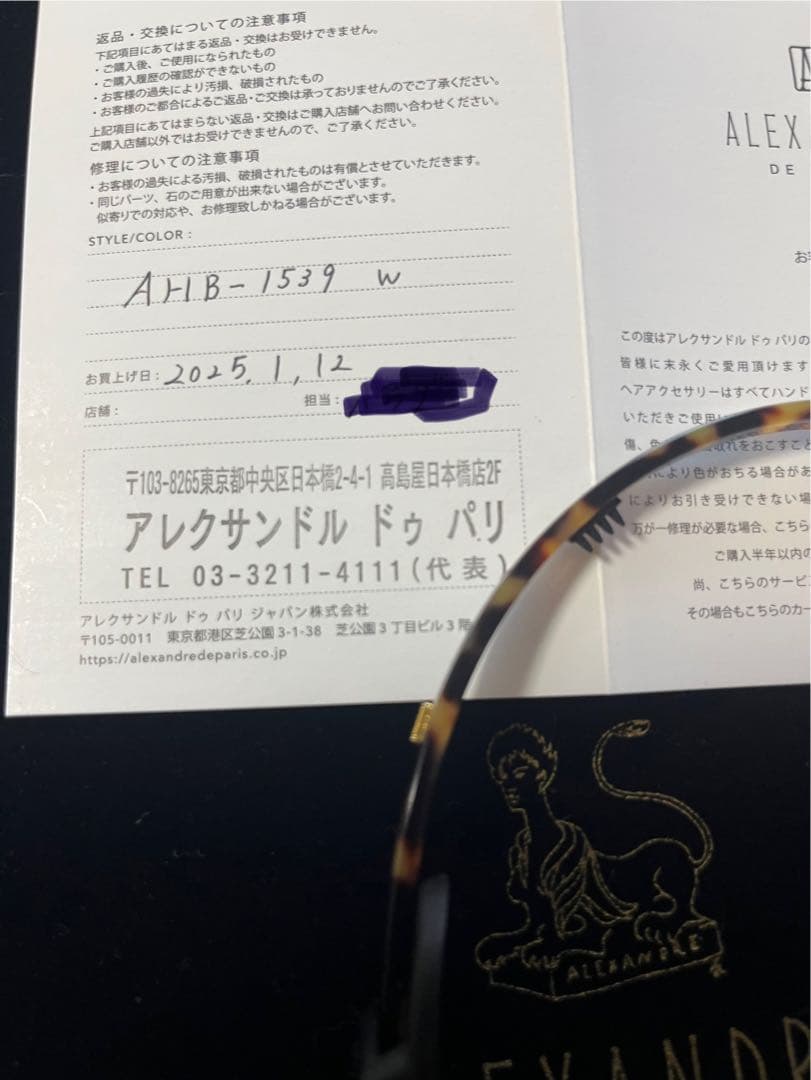 返品・交換についての注意事項
下記項目にあてはまる返品・交換はお受けできません。
・ご購入後、ご使用になられたもの
・ご購入履歴の確認ができないもの
・お客様の過失により汚損、破損されたもの
・お客様のご都合によるご返品・ご交換は承っておりませんのでご了承ください。
上記項目にあてはまらない返品・交換はご購入店舗へお問い合わせください。
ご購入店舗以外ではお受けできませんので、ご了承ください。
修理についての注意事項
・お客様の過失による汚損、破損されたものは有償とさせていただきます。
・同じパーツ、石のご用意が出来ない場合がございます。
似寄りでの対応や、お修理致しかねる場合がございます。
STYLE/COLOR :
AHB-1539 W
お買上げ日 : 2025.1,12
店舗 : 担当 :
〒103-8265東京都中央区日本橋2-4-1 高島屋日本橋店2F
アレクサンドル ドゥ パリ
TEL 03-3211-4111(代表)
アレクサンドル ドゥ パリ ジャパン株式会社
〒105-0011 東京都港区芝公園3-1-38 芝公園3丁目ビル3階
https://alexandredeparis.co.jp
ALEX
DE
お
この度はアレクサンドル ドゥ パリの
皆様に末永くご愛用頂けます
ヘアアクセサリーはすべてハンド
いただきご使用
傷、色 取れをおこすこと
により色がおちる場合があ
によりお引き受けできない場
万が一修理が必要な場合、こちら
ご購入半年以内の
尚、こちらのサービ
その場合もこちらのカー
ALEXANDRE
EXANDR